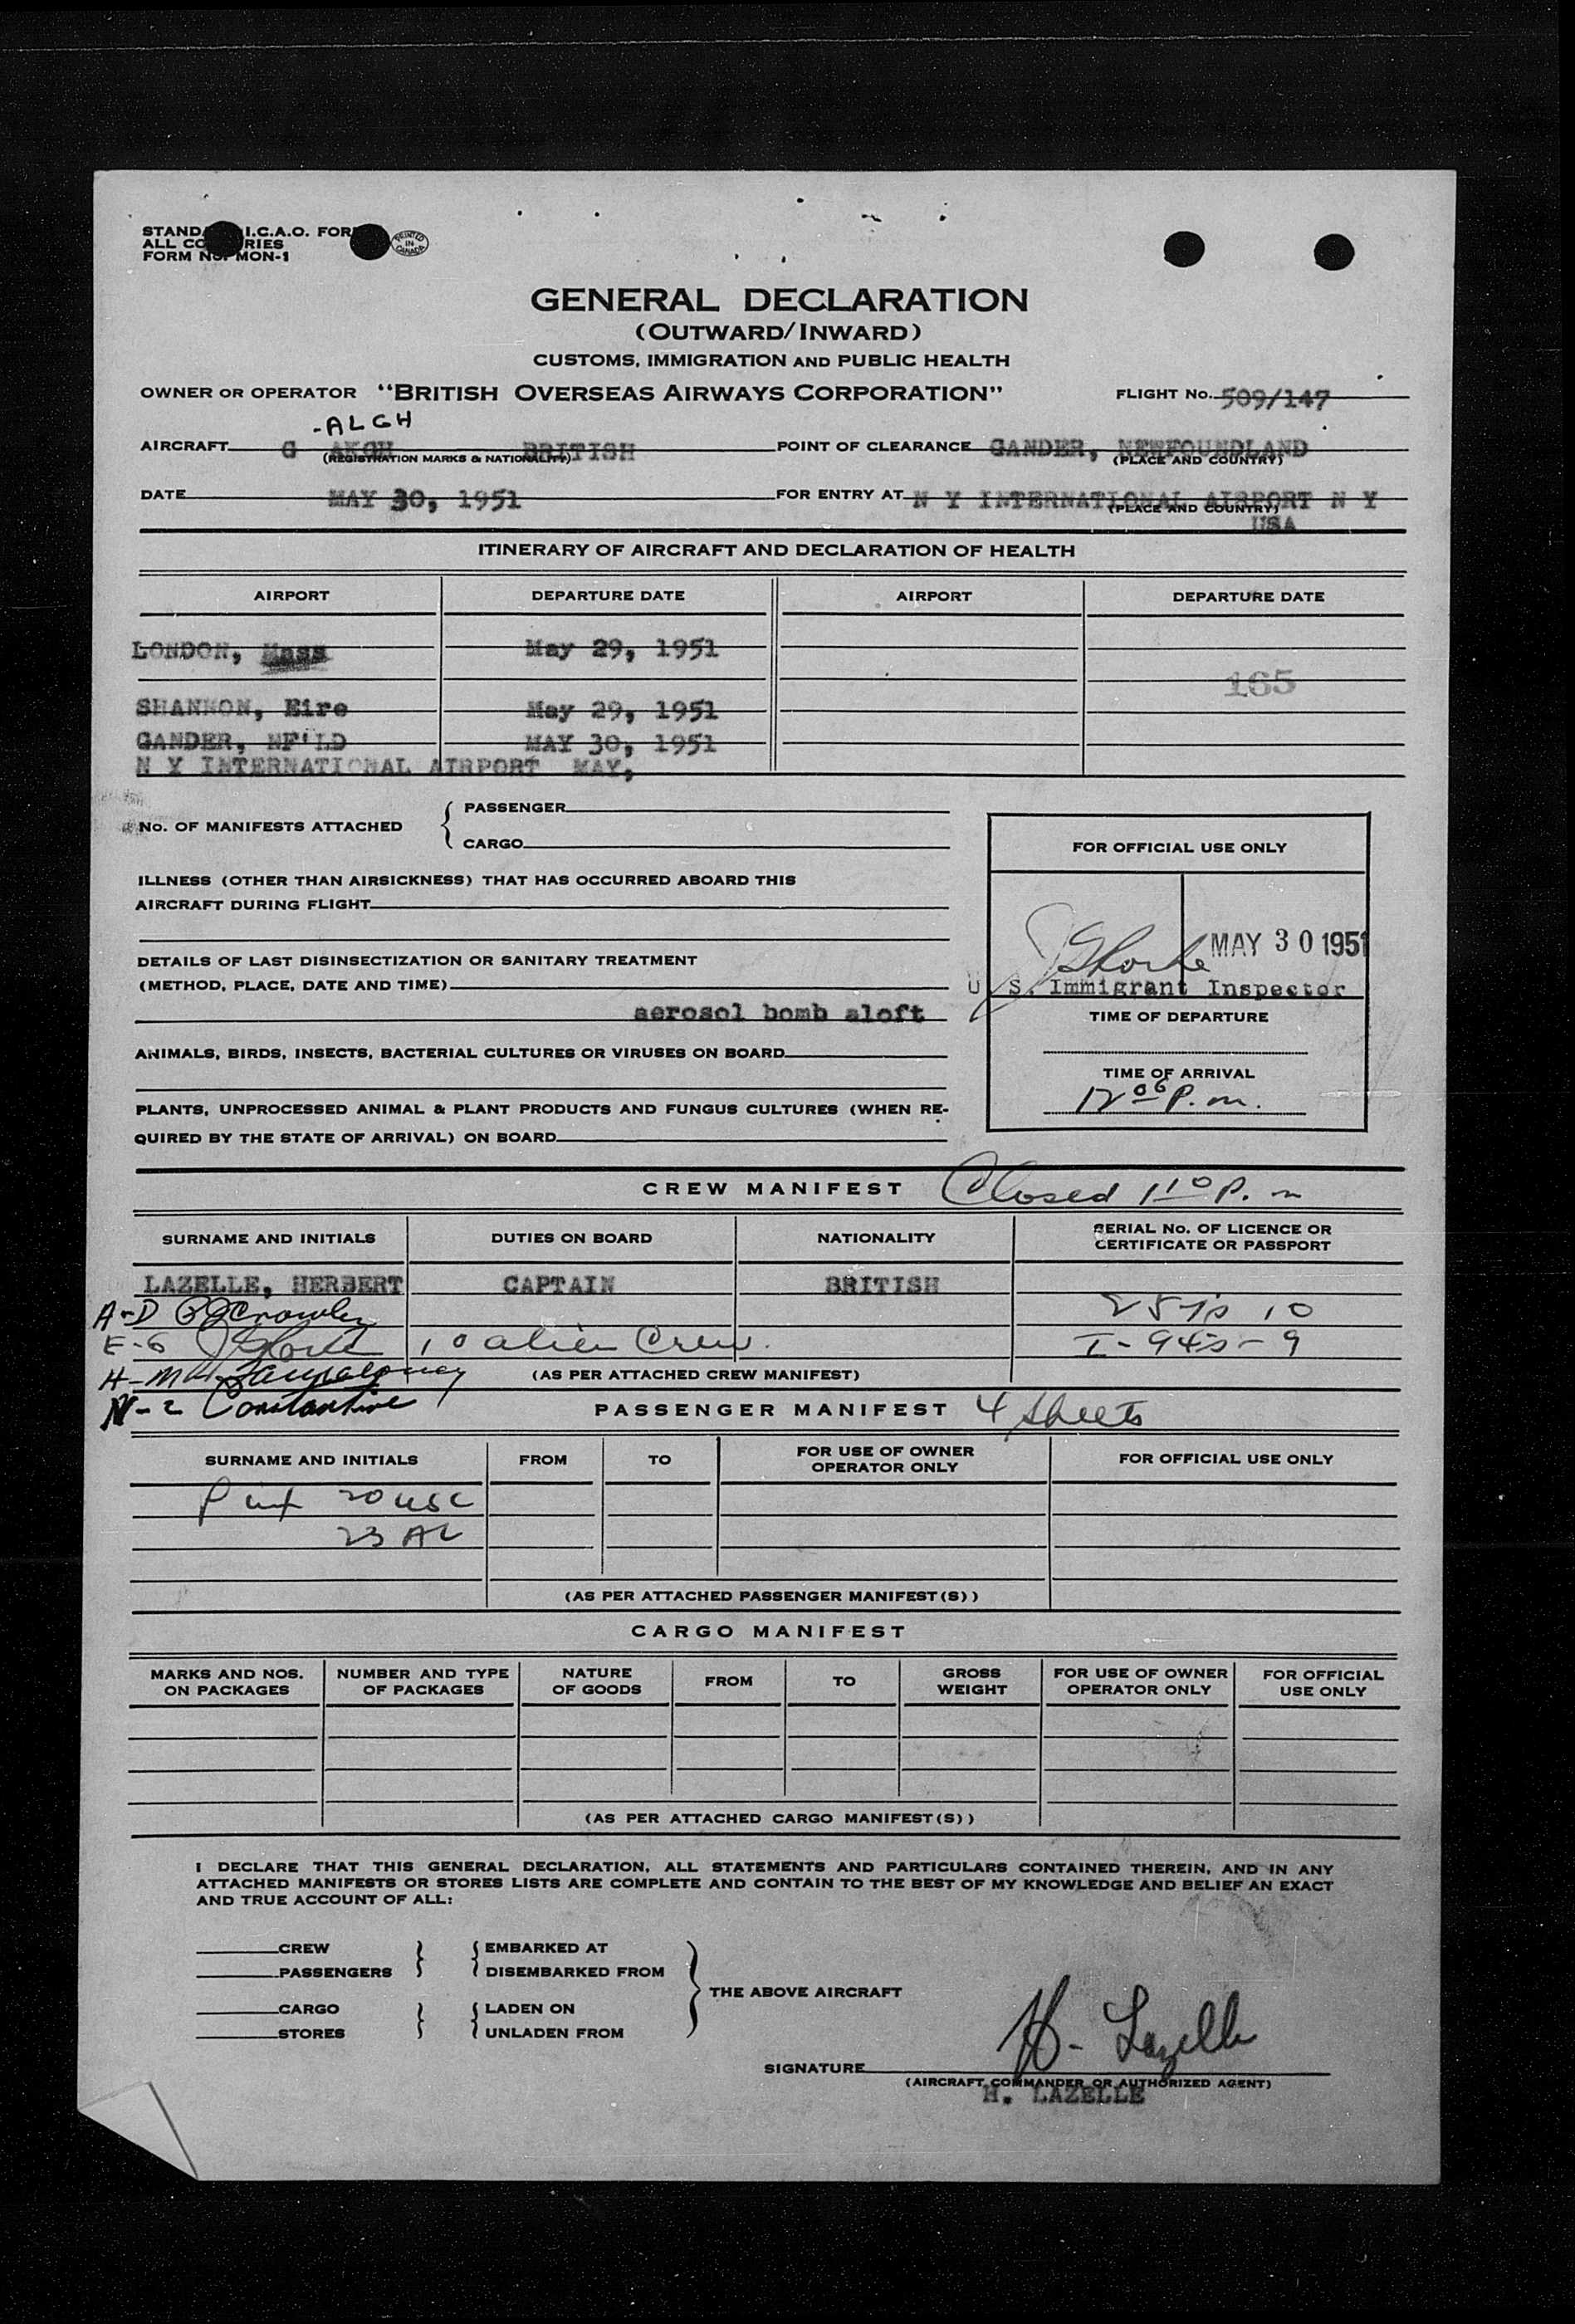 STAND I.C.A.O. FOR
ALL CO RIES
FORM No. MON-1
PRINTED IN CANADA
GENERAL DECLARATION
(OUTWARD/INWARD)
CUSTOMS, IMMIGRATION AND PUBLIC HEALTH
OWNER OR OPERATOR "BRITISH OVERSEAS AIRWAYS CORPORATION" FLIGHT No. 509/147
-ALGH
AIRCRAFT G AKGH BRITISH POINT OF CLEARANCE GANDER, NEWFOUNDLAND
(REGISTRATION MARKS & NATIONALITY) (PLACE AND COUNTRY)
DATE MAY 30, 1951 FOR ENTRY AT N Y INTERNATIONAL AIRPORT N Y
(PLACE AND COUNTRY)
USA
ITINERARY OF AIRCRAFT AND DECLARATION OF HEALTH
AIRPORT DEPARTURE DATE AIRPORT DEPARTURE DATE
LONDON, Mass May 29, 1951
165
SHANNON, Eire May 29, 1951
GANDER, NF'LD MAY 30, 1951
N Y INTERNATIONAL AIRPORT MAY,
No. OF MANIFESTS ATTACHED { PASSENGER
CARGO
FOR OFFICIAL USE ONLY
ILLNESS (OTHER THAN AIRSICKNESS) THAT HAS OCCURRED ABOARD THIS
AIRCRAFT DURING FLIGHT
MAY 30 1951
DETAILS OF LAST DISINSECTIZATION OR SANITARY TREATMENT
(METHOD, PLACE, DATE AND TIME)
U. S. Immigrant Inspector
aerosol bomb aloft
TIME OF DEPARTURE
ANIMALS, BIRDS, INSECTS, BACTERIAL CULTURES OR VIRUSES ON BOARD
TIME OF ARRIVAL
12 06 P.m.
PLANTS, UNPROCESSED ANIMAL & PLANT PRODUCTS AND FUNGUS CULTURES (WHEN RE-
QUIRED BY THE STATE OF ARRIVAL) ON BOARD
CREW MANIFEST Closed 1 10 P. m
SURNAME AND INITIALS DUTIES ON BOARD NATIONALITY SERIAL No. OF LICENCE OR
CERTIFICATE OR PASSPORT
LAZELLE, HERBERT CAPTAIN BRITISH
A-D Crowley
E-G 10 alien Crew. I-945-9
H-M (AS PER ATTACHED CREW MANIFEST)
N-Z Constantine
PASSENGER MANIFEST 4 sheets
SURNAME AND INITIALS FROM TO FOR USE OF OWNER
OPERATOR ONLY FOR OFFICIAL USE ONLY
20 USC
23 AL
(AS PER ATTACHED PASSENGER MANIFEST(S))
CARGO MANIFEST
MARKS AND NOS.
ON PACKAGES NUMBER AND TYPE
OF PACKAGES NATURE
OF GOODS FROM TO GROSS
WEIGHT FOR USE OF OWNER
OPERATOR ONLY FOR OFFICIAL
USE ONLY
(AS PER ATTACHED CARGO MANIFEST(S))
I DECLARE THAT THIS GENERAL DECLARATION, ALL STATEMENTS AND PARTICULARS CONTAINED THEREIN, AND IN ANY
ATTACHED MANIFESTS OR STORES LISTS ARE COMPLETE AND CONTAIN TO THE BEST OF MY KNOWLEDGE AND BELIEF AN EXACT
AND TRUE ACCOUNT OF ALL:
CREW } { EMBARKED AT }
PASSENGERS DISEMBARKED FROM
THE ABOVE AIRCRAFT
CARGO } { LADEN ON
STORES UNLADEN FROM
H. Lazelle
SIGNATURE
(AIRCRAFT COMMANDER OR AUTHORIZED AGENT)
H. LAZELLE